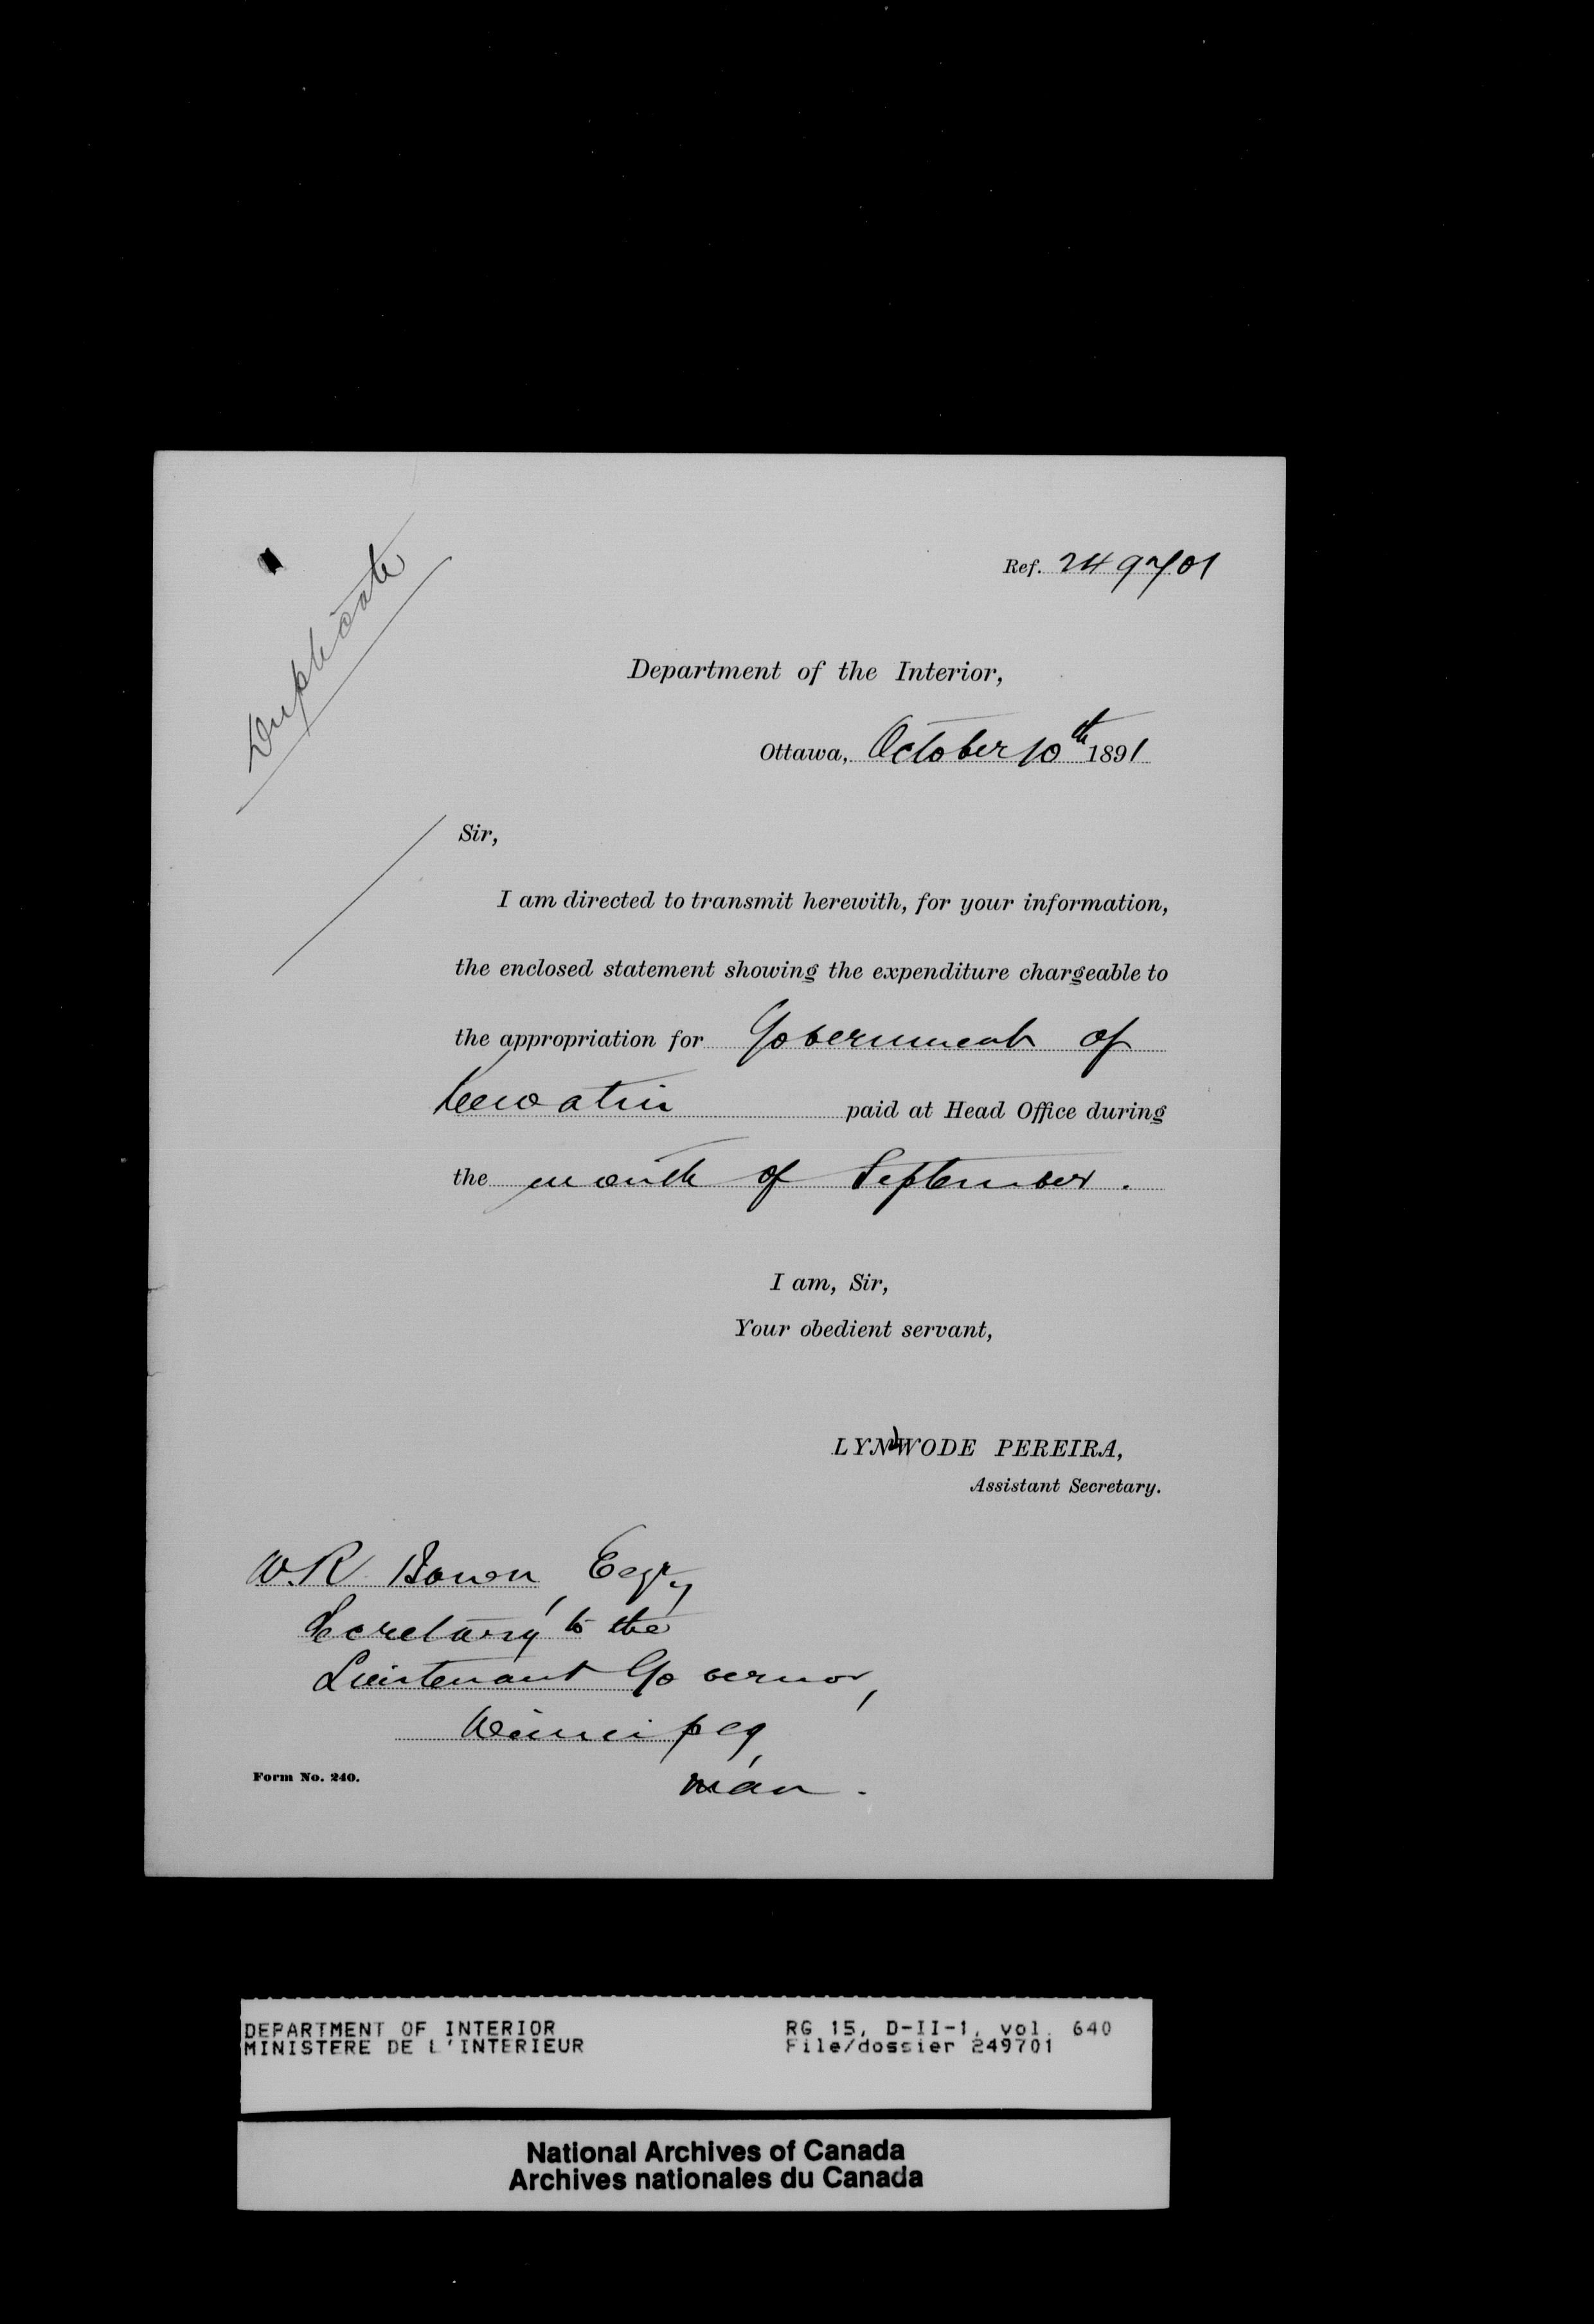 Duplicate
Ref. 249701
Department of the Interior,
Ottawa, October 10th 1891
Sir,
I am directed to transmit herewith, for your information,
the enclosed statement showing the expenditure chargeable to
the appropriation for Government of
Keewatin paid at Head Office during
the month of September.
I am, Sir,
Your obedient servant,
LYNDWODE PEREIRA,
Assistant Secretary.
W. R. Bown, Esqr,
Secretary to the
Lieutenant Governor,
Winnipeg,
Man.
Form No. 240.
DEPARTMENT OF INTERIOR RG 15, D-II-1, vol. 640
MINISTERE DE L'INTERIEUR File/dossier 249701
National Archives of Canada
Archives nationales du Canada